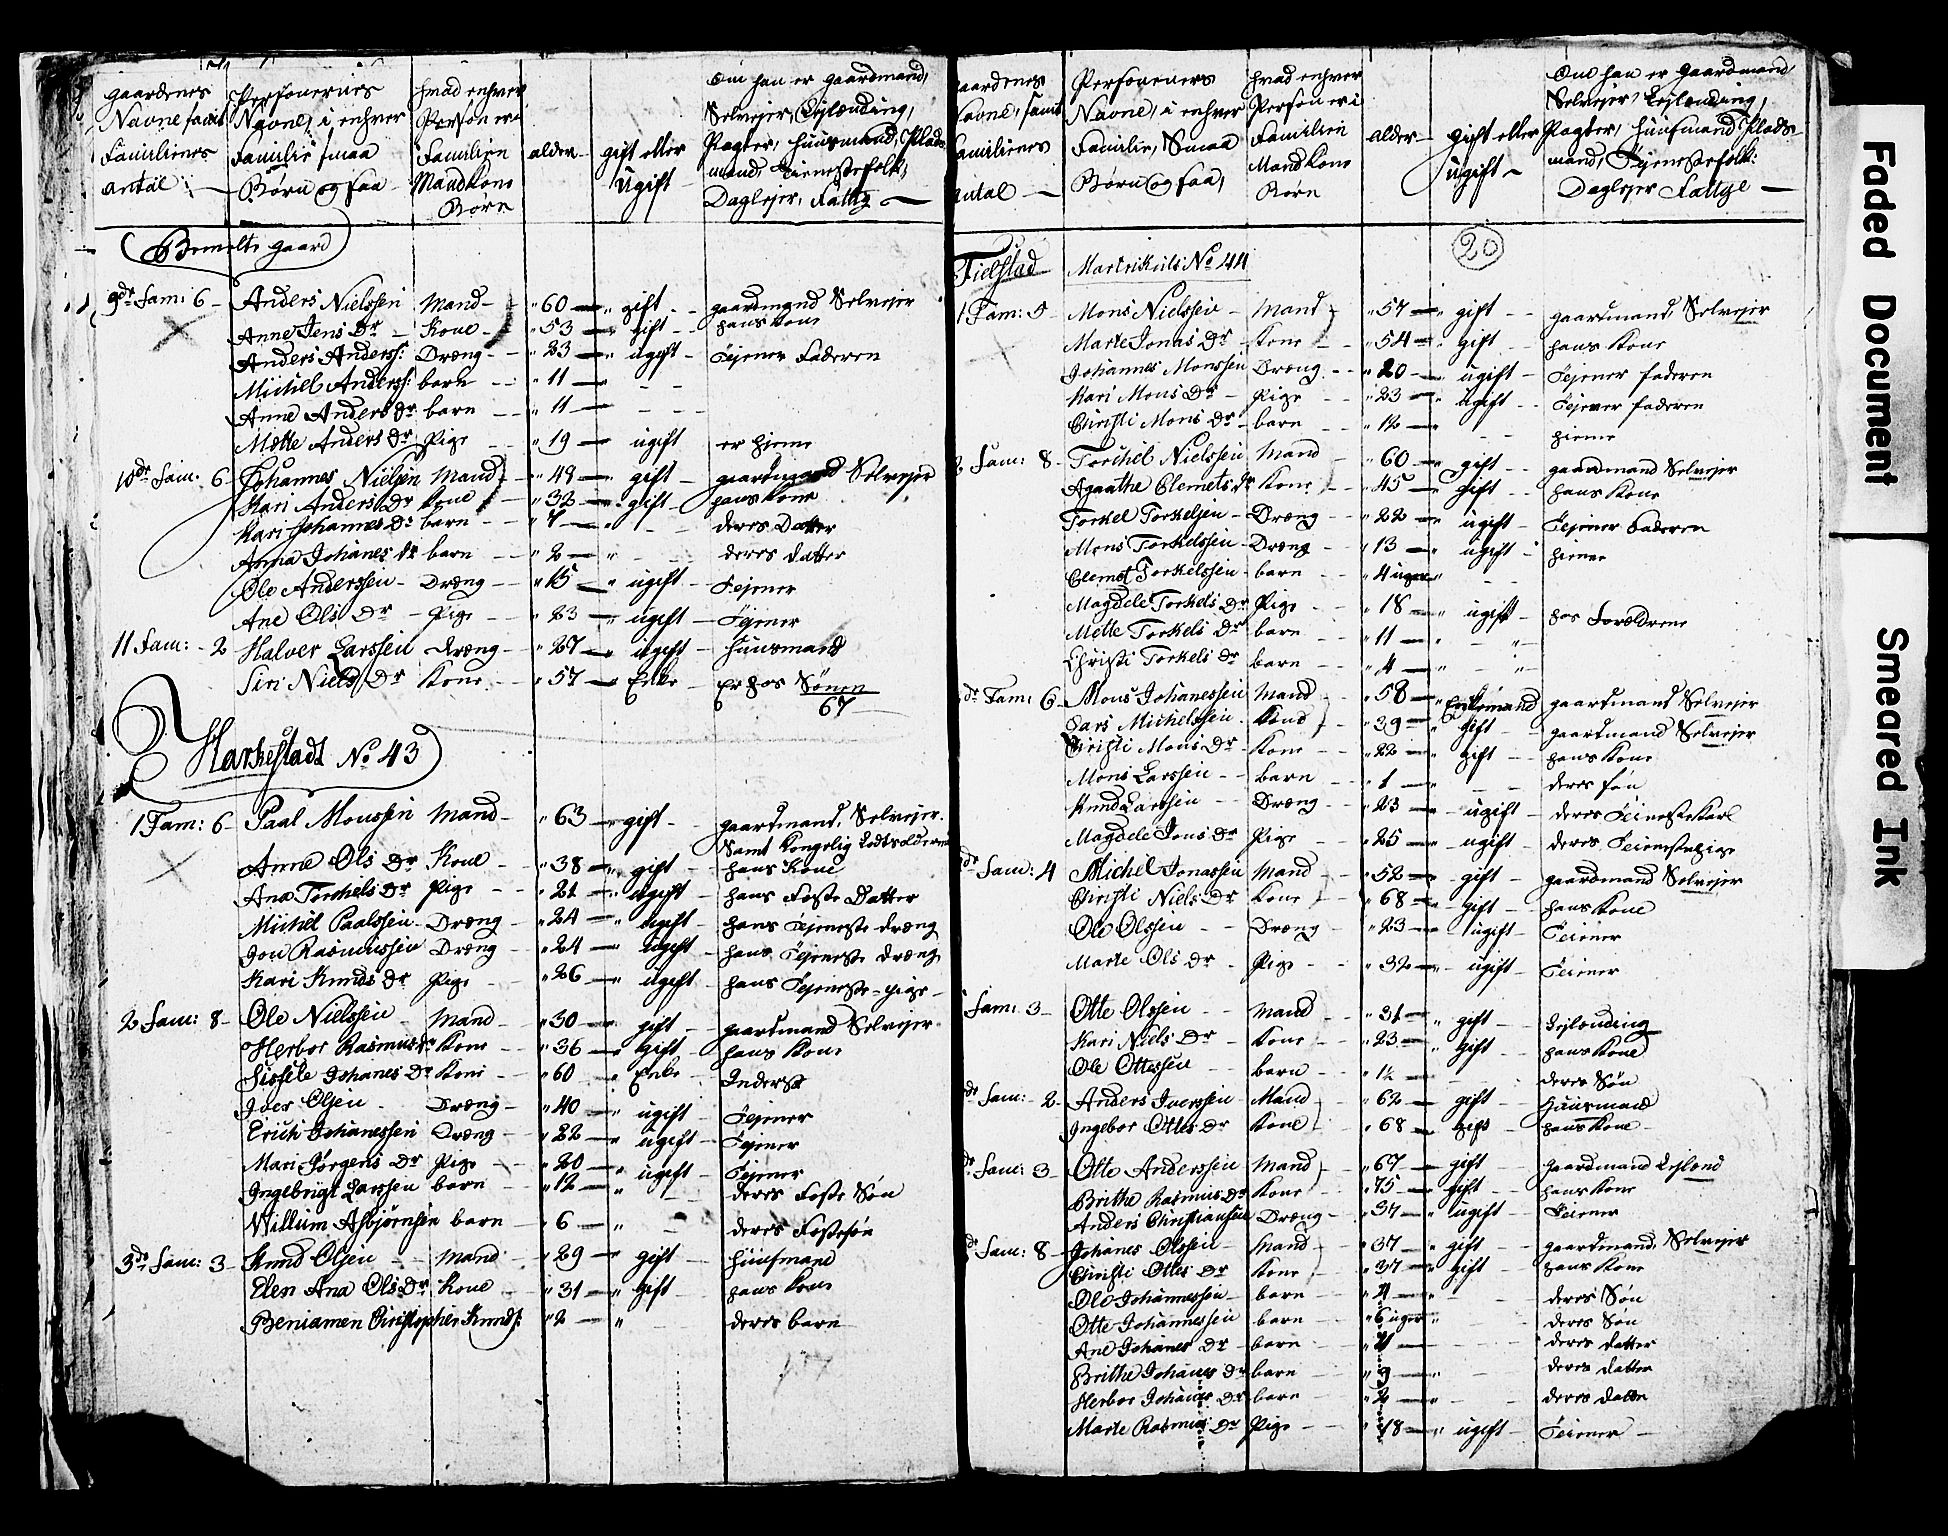 gaardenes Personernes hvad enhver Om han er gaardmand,
Navne samt Navne, i enhver Person er i Selvejer, Lejlænding,
Familienes Familie smaa Familien alder gift eller Pagter, Huusmand, Plads
antal Børn og saa Mand Kone ugift mand, Tienestefolk,
Børn Daglejer, Fattig
Bemelte gaard
9de Fam: 6 Anders Nielssen Mand 60 gift gaardmand Selvejer
Anne Jens Dr Kone 53 gift hans Kone
Anders Anderss: Dræng 23 ugift Tjener Faderen
Michel Anderss: barn 11
Anne Anders Dr barn 11
Mette Anders Dr Pige 19 ugift er hieme
10de Fam: 6 Johannes Nielsen Mand 49 gift gaardmand Selvejer
Kari Anders Dr Kone 32 gift hans Kone
Kari Johannes Dr barn 7 deres Datter
Anna Johanes Dr barn 2 deres datter
Ole Anderssen Dræng 15 ugift Tejener
Ane Ols Dr Pige 23 ugift Tejener
11 Fam: 2 Halver Larssen dræng 27 ugift Huusmand
Siri Niels Dr Kone 57 Enke Er hos Sønen
67
Harkestadt No 43
1 Fam: 6 Paal Monssen Mand 63 gift gaardmand, Selvejer.
Samt Kongelig
Anne Ols Dr Kone 38 gift hans Kone
Ana Torkels Dr Pige 21 ugift hans Foste Datter
Michel Paalssen Dræng 24 ugift hans Tejeneste dræng
Jon Rasmussen Dræng 24 ugift hans Tejeneste dræng
Kari Knuds Dr Pige 26 ugift hans Tejeneste-pige
2 Fam: 8 Ole Nielssen Mand 30 gift gaardmand Selvejer
Herbor Rasmus Dr Kone 36 gift hans Kone
Sissele Johanes Dr Kone 60 Enke Inderst
Iver Olsen Dræng 40 ugift Tejener
Erich Johanessen Dræng 22 ugift Tejener
Mari Jørgens Dr Pige 20 ugift Tejener
Ingebrigt Larssen barn 12 deres Foste Søn
Willum Asbjørnsen barn 6 deres Fostesøn
3de Fam: 3 Knud Olsen Mand 29 gift Huusmand
Elen Ana Ols Dr Kone 31 gift hans Kone
Beniamen Christopher Knuds: 2 deres barn
aardenes Personeners hvad enhver Om han er gaardmand,
Navne, samt Navne, i enhver Person er i Selvejer, Lejlænding,
Familienes Familie, Smaa Familien alder gift eller Pagter, Huusmand Plads
antal Børn og saa, Mand Kone ugift mand, Tjenestefolk:
Børn Daglejer Fattige
20
Tielstad Martrikuls No 44
1 Fam: 5 Mons Nielssen Mand 57 gift gaardmand, Selvejer
Marte Jonas Dr Kone 54 gift hans Kone
Johannes Monssen Dræng 20 ugift Tejener faderen
Kari Mons Dr Pige 23 ugift Tejener faderen
Christi Mons Dr barn 12 hieme
2 Fam: 8 Torchel Nielssen Mand 60 gift gaardmand Selvejer
Agaathe Clemets Dr Kone 45 gift hans Kone
Torkel Torkelsen Dræng 22 ugift Tejener faderen
Mons Torkelssen Dræng 13 ugift hieme
Clemet Torkelssen barn 4 uger
Magdele Torkels Dr Pige 18 ugift hos Forældrene
Mette Torkels Dr barn 11
Christi Torkels Dr barn 4
de Fam: 6 Mons Johanessen Mand 58 Enkemand gaardmand Selvejer
Lars Michelssen Mand 39 gift gaardmand Selvejer
Christi Mons Dr Kone 22 gift hans Kone
Mons Larssen barn 1 deres søn
Knud Larssen Dræng 23 ugift deres Teieneste Karl
Magdele Jons Dr Pige 25 ugift deres Teienestepige
de Fam: 4 Michel Jonassen Mand 52 gift gaardmand Selvejer
Christi Niels Dr Kone 68 gift hans Kone
Ole Olssen Dræng 23 ugift Teiener
Marte Ols Dr Pige 32 ugift Teiener
Fam: 3 Otte Olssen Mand 31 gift Lejlending
Kari Niels Dr Kone 23 gift hans Kone
Ole Ottessen barn 1½ deres Søn
de Fam: 2 Anders Iverssen Mand 62 gift Huusmand
Ingebor Ottes Dr Kone 68 gift hans Kone
de Fam: 3 Otte Anderssen Mand 67 gift Gaardmand Lejlend
Brithe Rasmus Dr Kone 75 gift hans Kone
Anders Christiansen Dræng 37 ugift Teiener
de Fam: 8 Johanes Olssen Mand 37 gift gaardmand, Selvejer
Christi Ottes Dr Kone 37 gift hans Kone
Ole Johannessen barn 4 deres Søn
Otte Johannessen barn 6 uger deres Søn
Ane Johanes Dr barn deres datter
Brithe Johanes Dr barn 9 deres datter
Herbor Johanes Dr barn 2 deres datter
Marte Rasmus Dr Pige 18 ugift Teiener
Faded Document
Smeared Ink